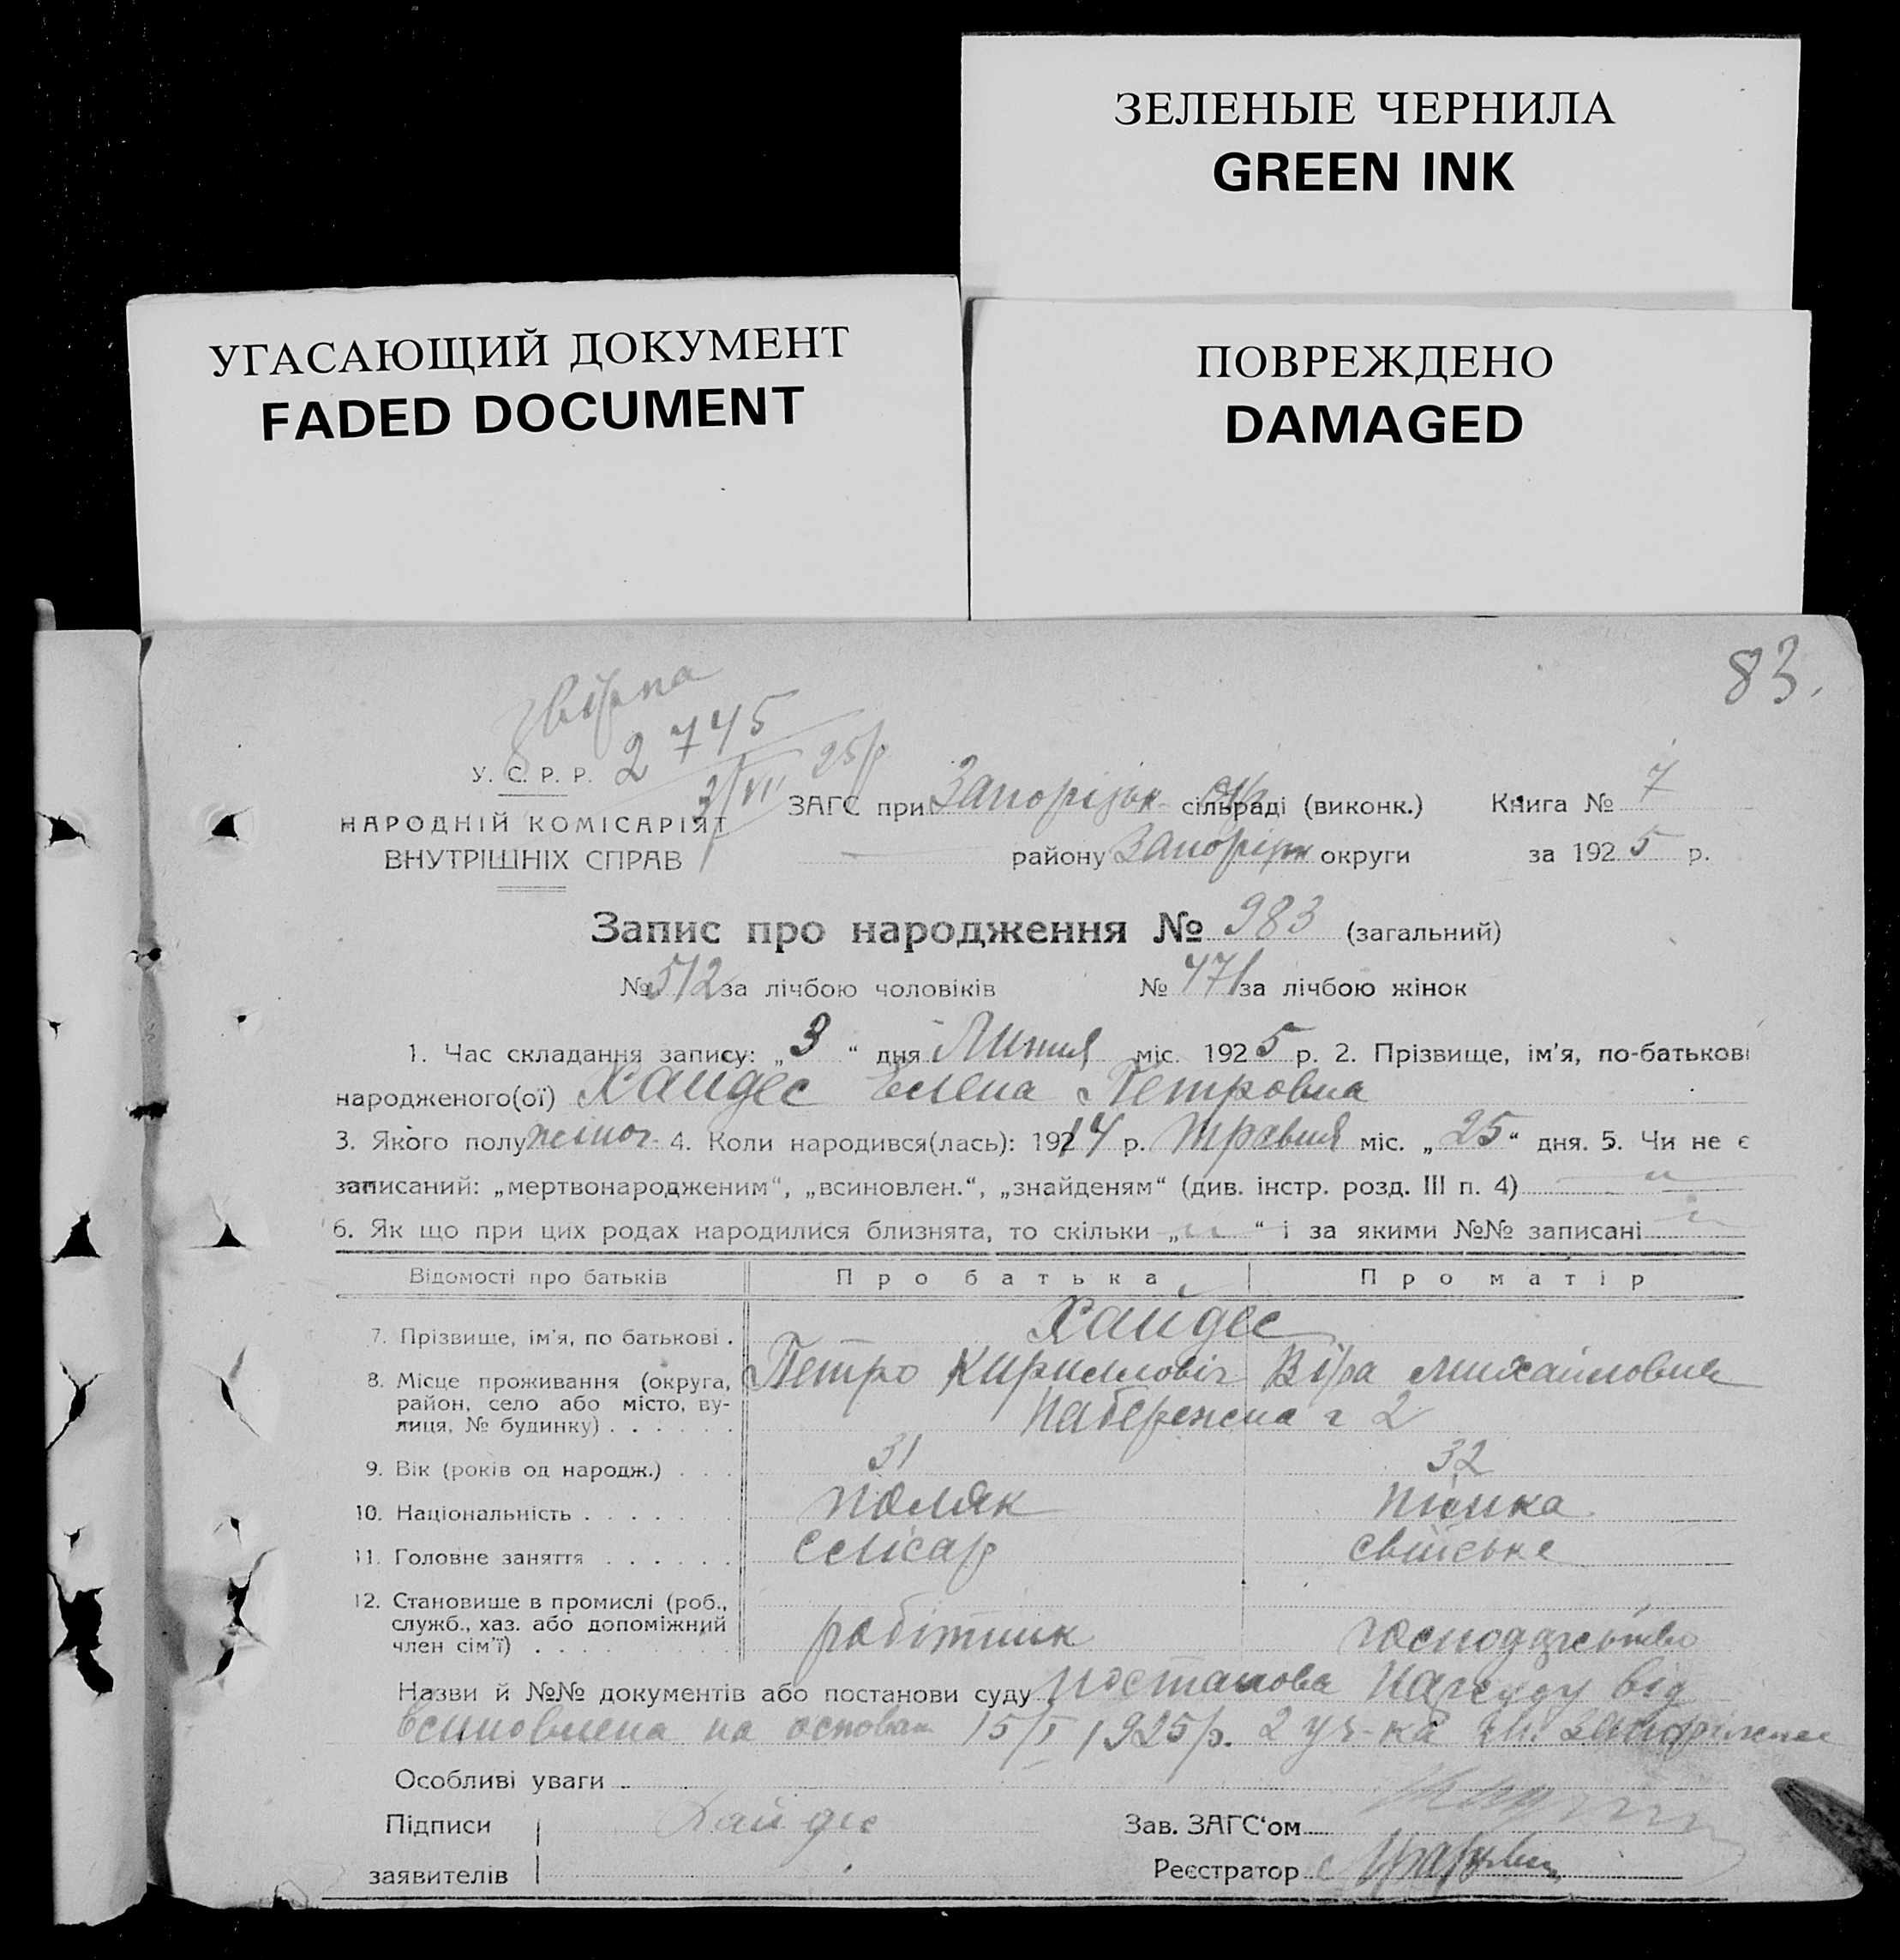 ЗЕЛЕНЫЕ ЧЕРНИЛА
GREEN INK
УГАСАЮЩИЙ ДОКУМЕНТ
FADED DOCUMENT
ПОВРЕЖДЕНО
DAMAGED
83.
2745
25р
3/VII
У. С. Р. Р.
НАРОДНІЙ КОМІСАРІЯТ
ВНУТРІШНІХ СПРАВ
ЗАГС при Запорізьк сільраді (виконк.) Книга № 7
району Запоріжк округи за 1925 р.
Запис про народження № 983 (загальний)
№ 512 за лічбою чоловіків № 471 за лічбою жінок
1. Час складання запису: „3“ дня Липня міс. 1925 р. 2. Прізвище, ім'я, по-батькові
народженого(ої) Хайдес Елена Петровна
3. Якого полу жіноч. 4. Коли народився(лась): 1914 р. Травня міс. „25“ дня. 5. Чи не є
записаний: „мертвонародженим“, „всиновлен.“, „знайденям“ (див. інстр. розд. III п. 4)
6. Як що при цих родах народилися близнята, то скільки „ “ і за якими №№ записані
Відомості про батьків Про батька Про матір
7. Прізвище, ім'я, по батькові . Хайдес
Петро Кириллович Віра Михайловна
8. Місце проживання (округа, район, село або місто, вулиця, № будинку) . . . . . . Набережна 2
9. Вік (років од народж.) . . . 31 32
10. Національність . . . . . . поляк німка
11. Головне заняття . . . . . . слюсар свійське
12. Становище в промислі (роб., служб., хаз. або допоміжний член сім'ї) . . . . . . робітник господарство
Назви й №№ документів або постанови суду постанова Нарсуду від
всиновлена на основан 15/I 1925р. 2 уч-ка
Особливі уваги
Підписи Хайдес Зав. ЗАГС'ом
заявителів Реєстратор